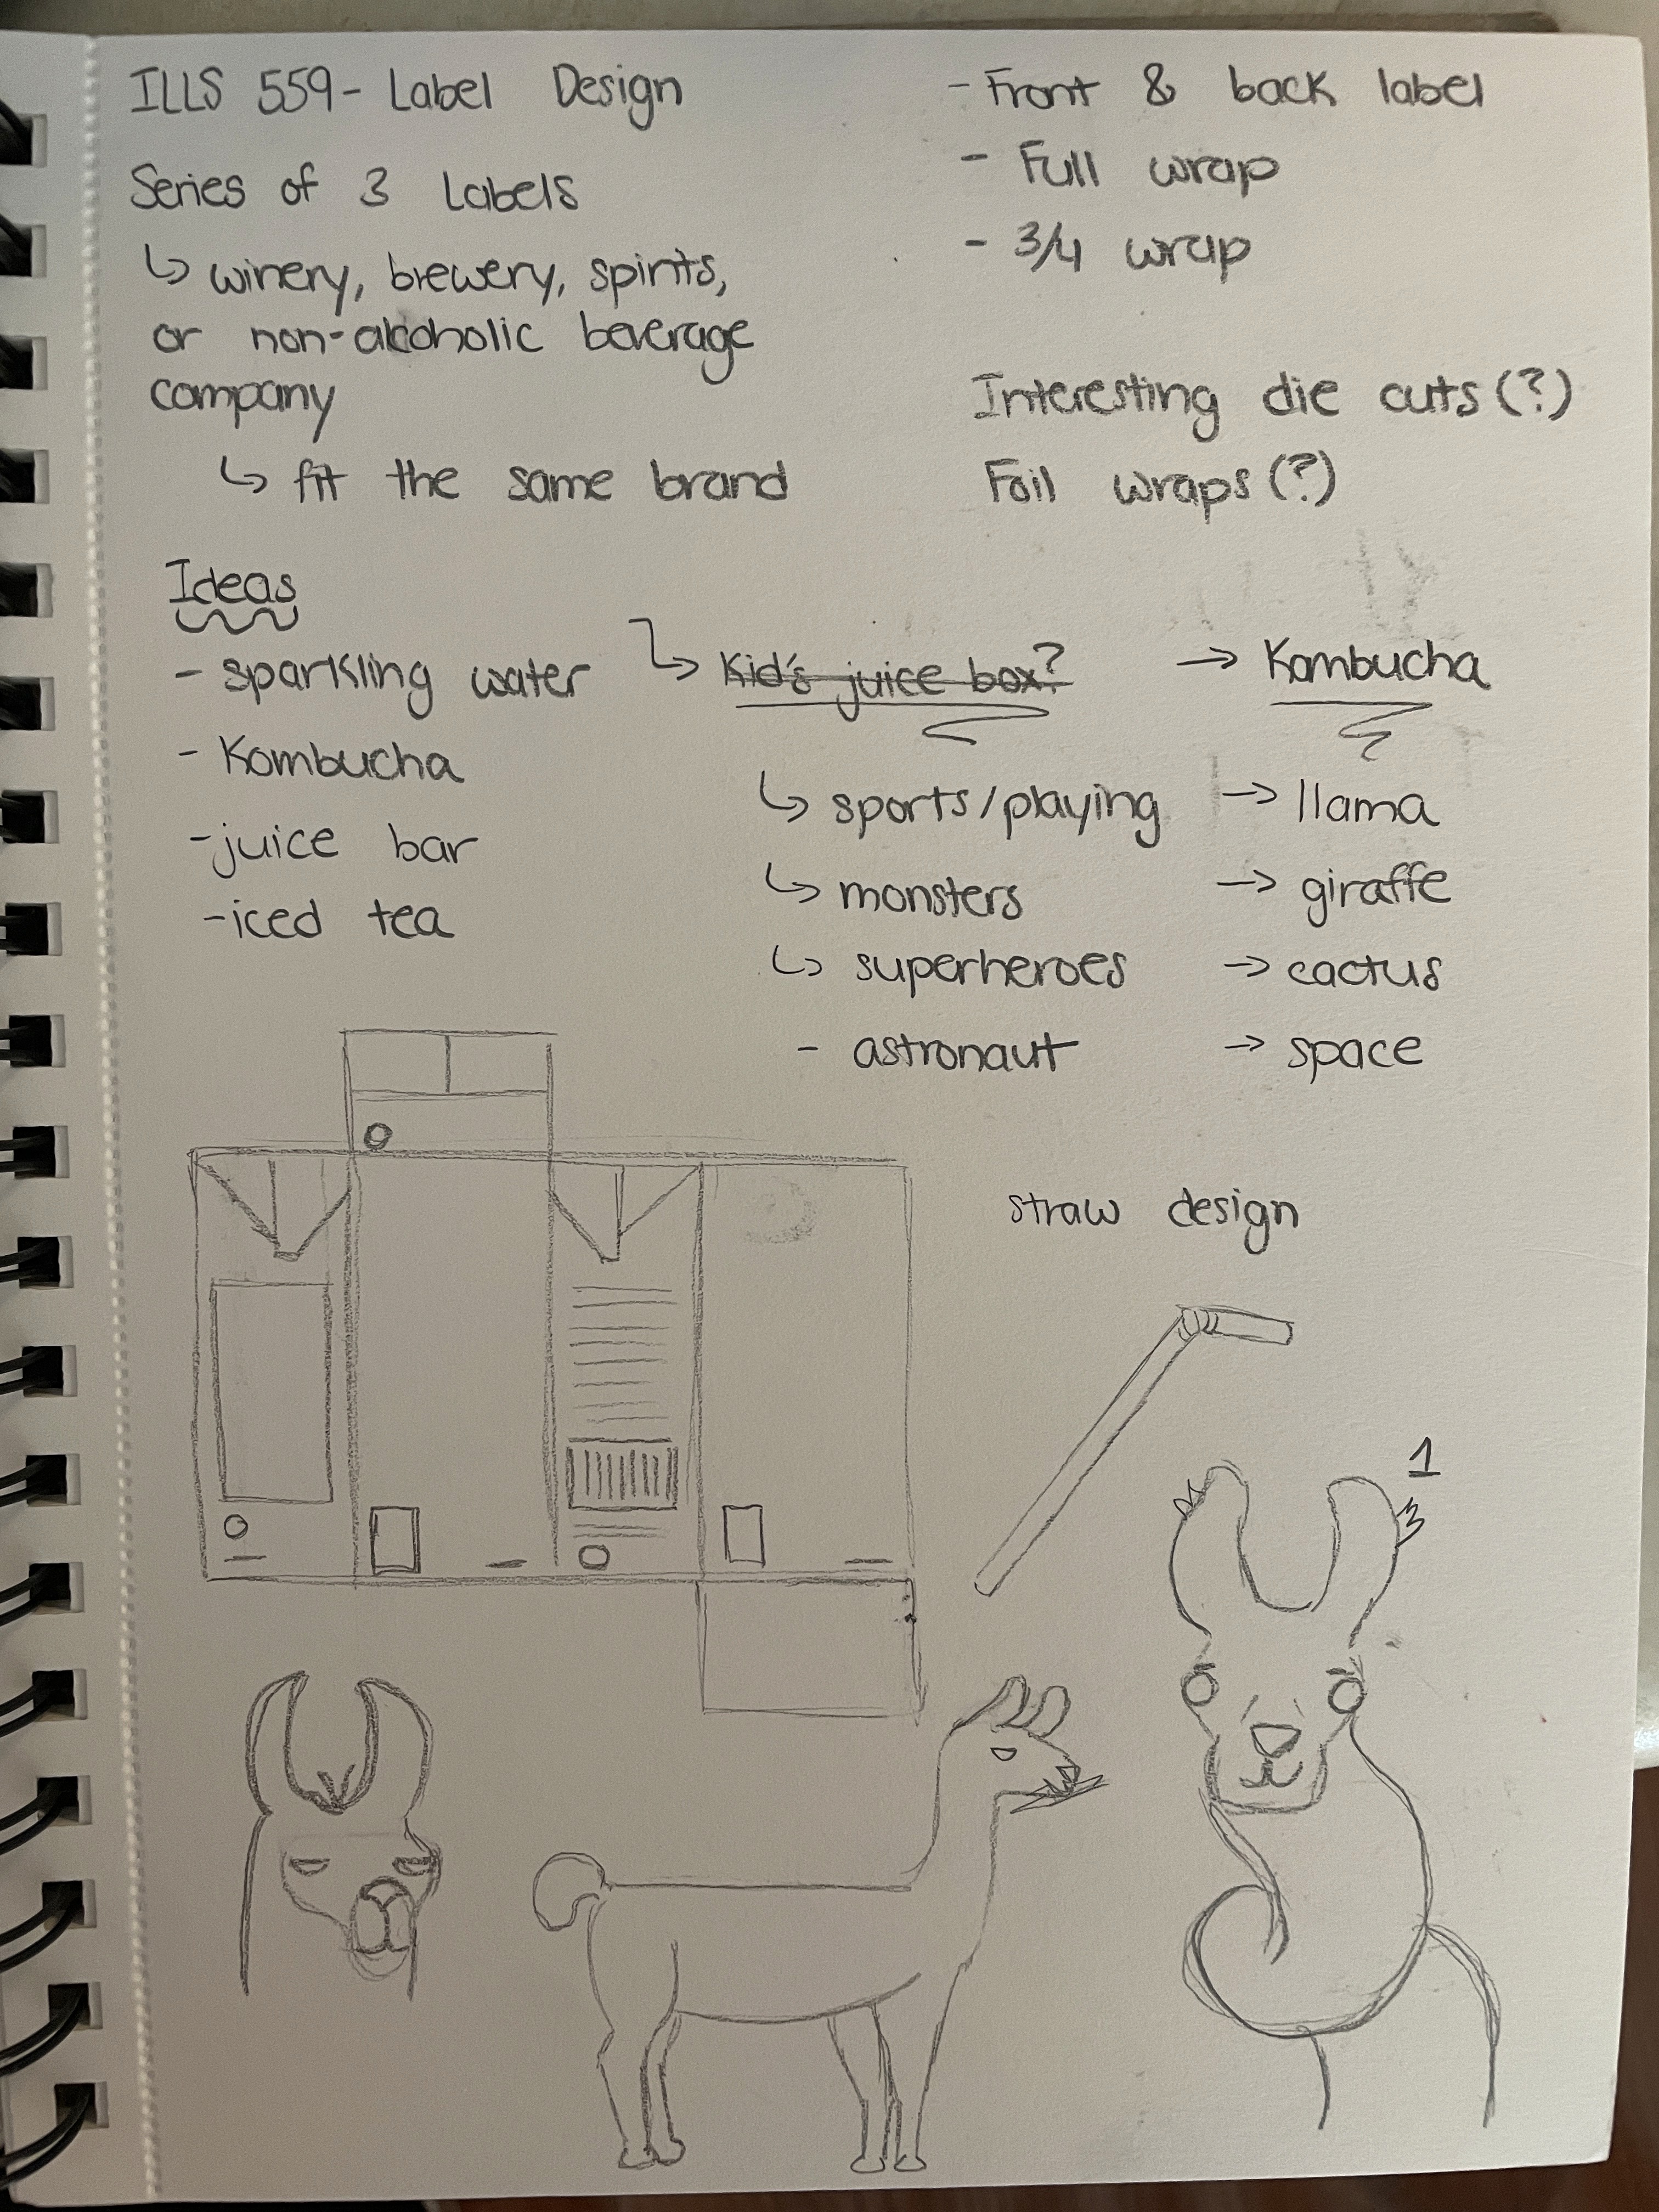 ILLS 559 - Label Design
Series of 3 Labels
↳ winery, brewery, spirits,
or non-alcoholic beverage
company
↳ fit the same brand
- Front & back label
- Full wrap
- 3/4 wrap
Interesting die cuts (?)
Foil wraps (?)
Ideas
- sparkling water
- Kombucha
- juice bar
- iced tea
↳ Kid's juice box?
↳ sports/playing
↳ monsters
↳ superheroes
- astronaut
→ Kombucha
→ llama
→ giraffe
→ cactus
→ space
straw design
1